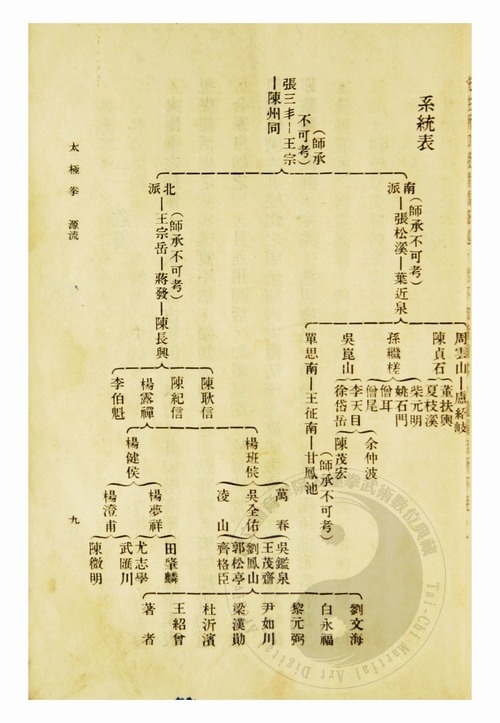 系統表
張三丰—王宗
（師承不可考）
—陳州同
南派—張松溪—葉近泉
（師承不可考）
北派—王宗岳—蔣發—陳長興
（師承不可考）
周雲山—盧紹岐
陳貞石
董扶輿
夏枝溪
孫繼槎
柴元明
姚石門
僧耳
僧尾
吳崑山
李天目
徐岱岳
余仲波
陳茂宏
單思南—王征南—甘鳳池
（師承不可考）
陳耿信
陳紀信
楊露禪
李伯魁
楊班侯
楊健侯
萬春
吳全佑
凌山
楊夢祥
楊澄甫
吳鑑泉
王茂齋
劉鳳山
郭松亭
齊格臣
田肇麟
尤志學
武匯川
陳微明
劉文海
白永福
黎元弼
尹如川
梁漢勛
杜沂濱
王紹曾
著者
太極拳 源流
九
Tai-Chi Martial Art Digital